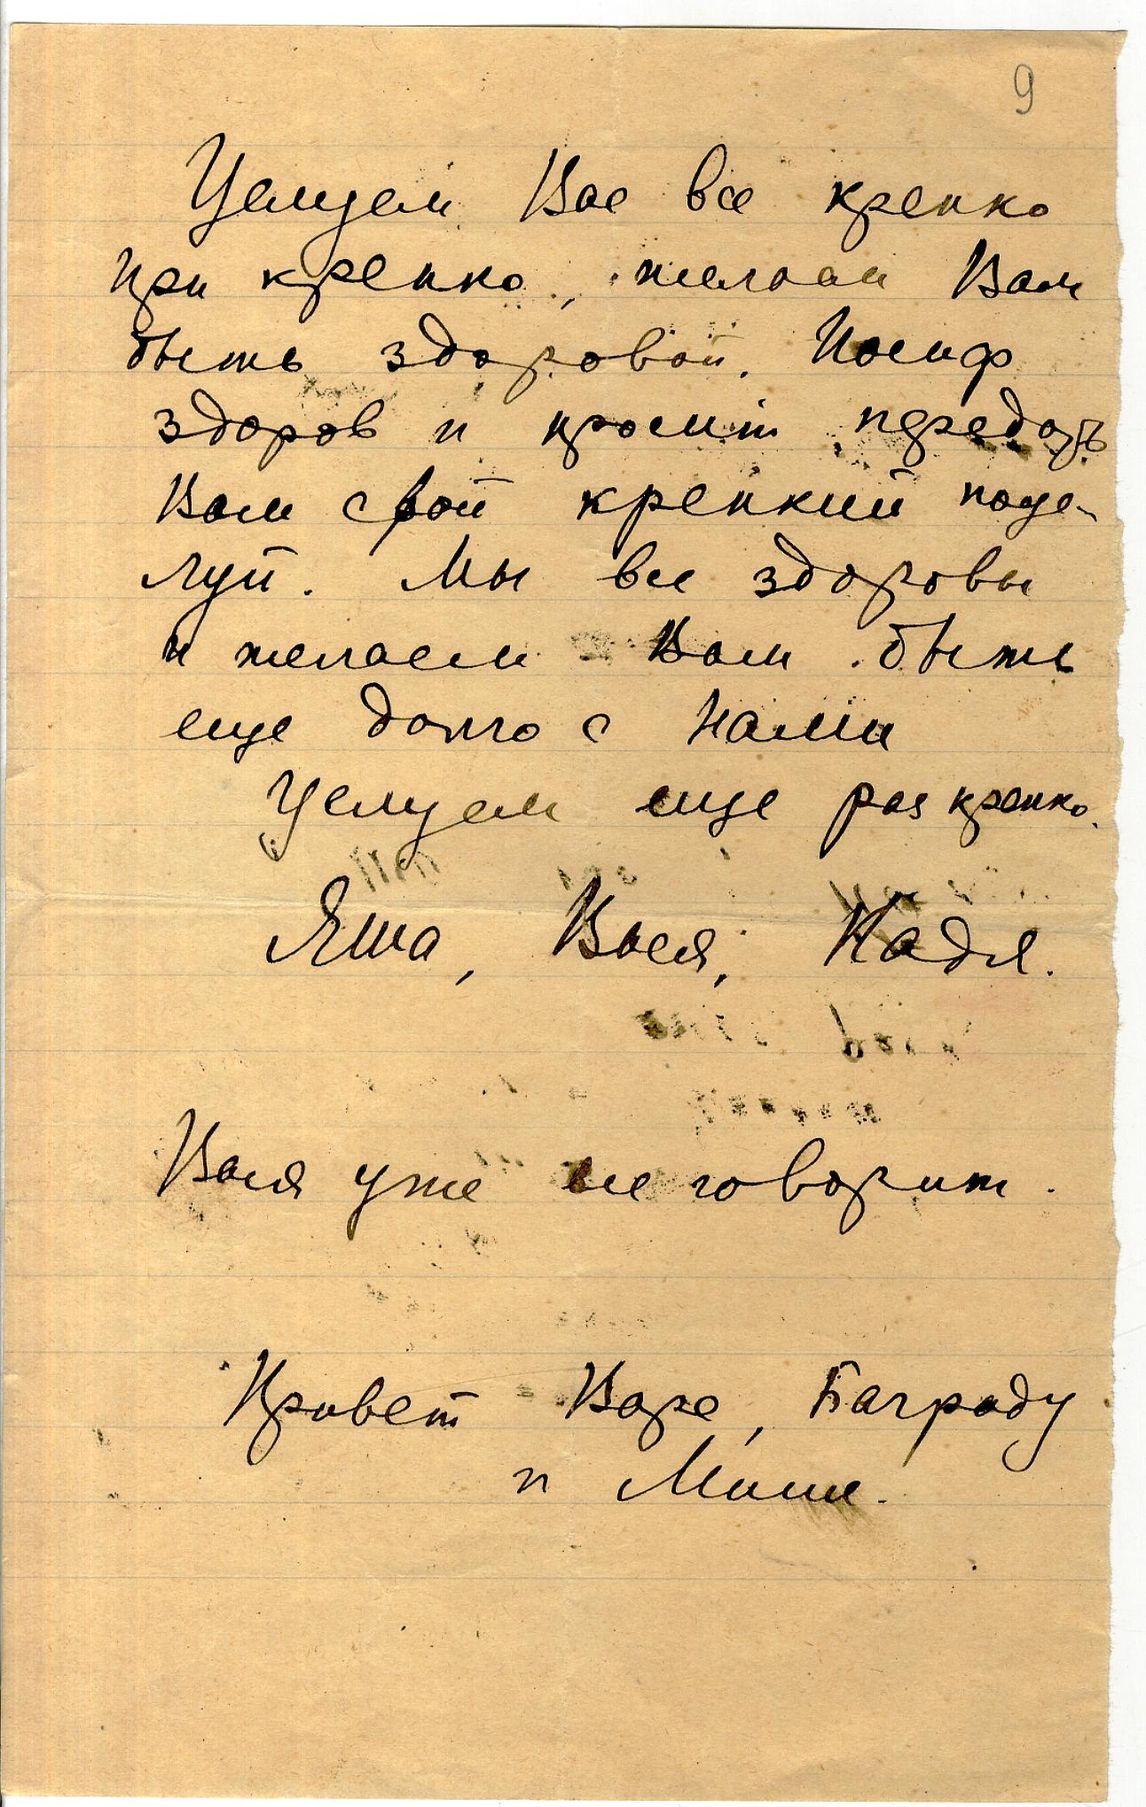 9
Целуем Вас все крепко
при крепко, желаем Вам
быть здоровой. Иосиф
здоров и просит передать
Вам свой крепкий поце-
луй. Мы все здоровы
и желаем Вам быть
еще долго с нами
Целуем еще раз крепко.
Яша, Вася, Надя.
Вася уже все говорит.
Привет Варе, Баграду
и Мише.